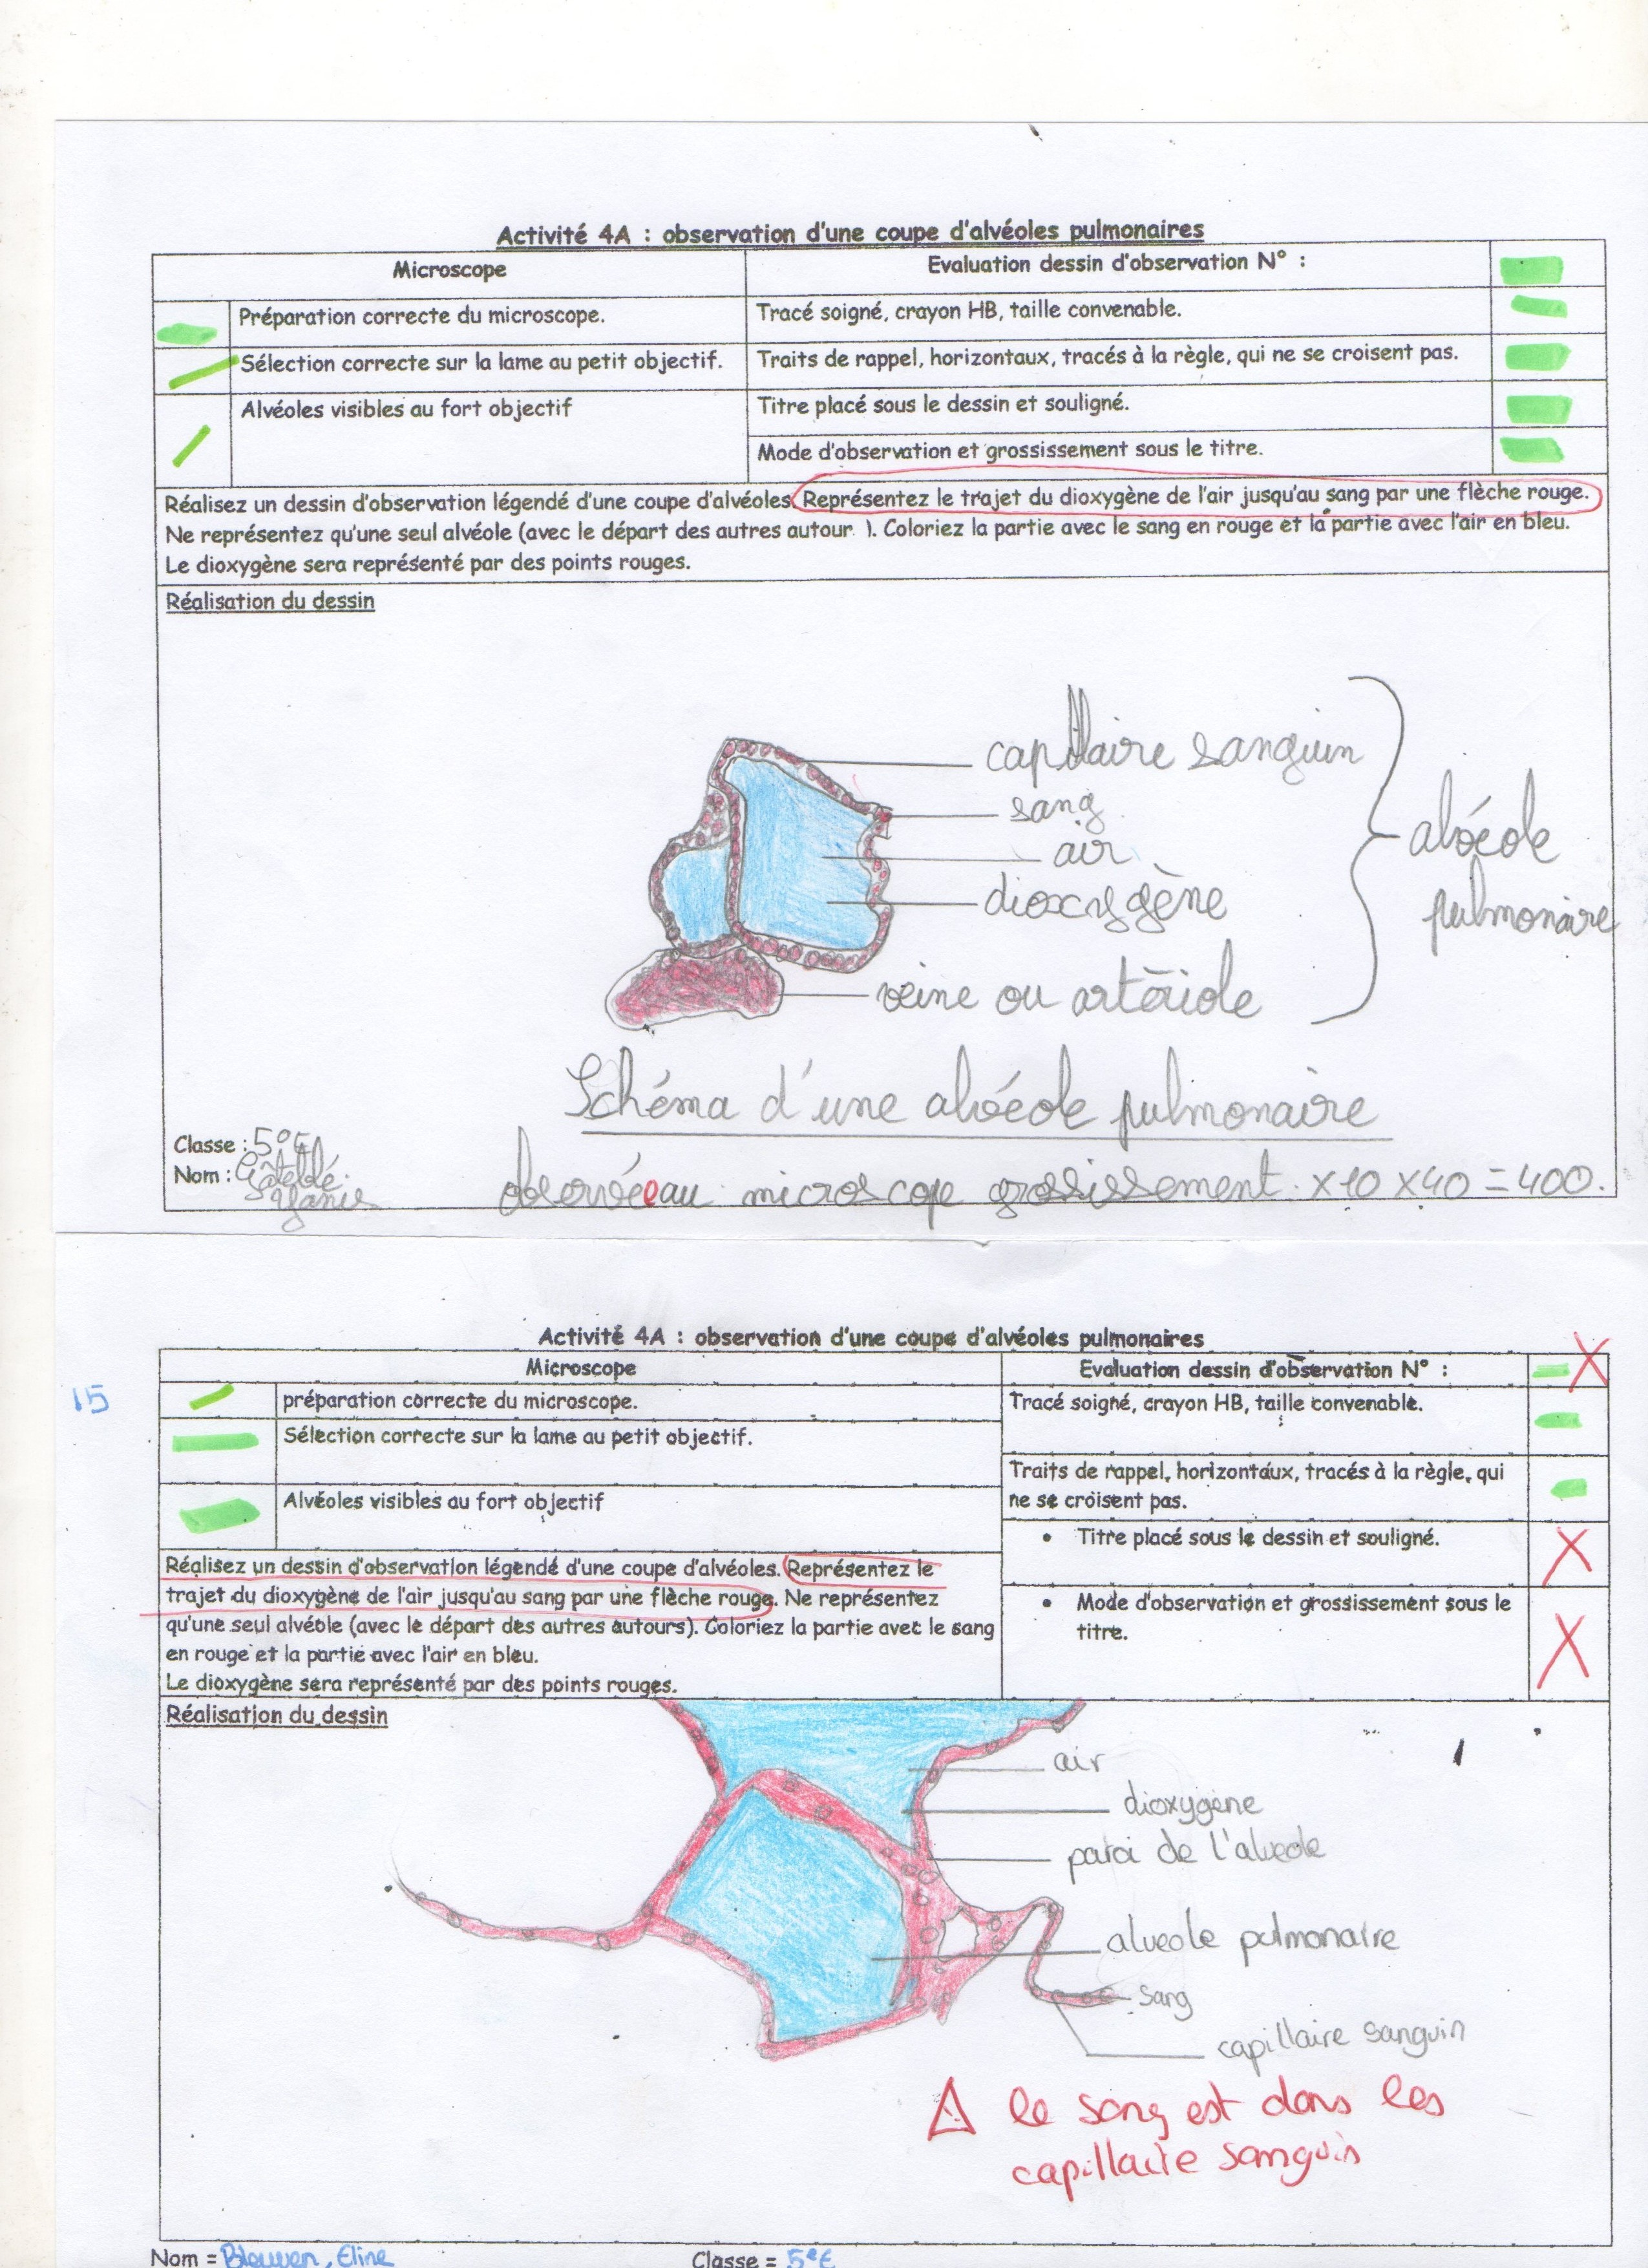 Activité 4A : observation d'une coupe d'alvéoles pulmonaires
Microscope
Evaluation dessin d'observation N° :
Préparation correcte du microscope.
Tracé soigné, crayon HB, taille convenable.
Sélection correcte sur la lame au petit objectif.
Traits de rappel, horizontaux, tracés à la règle, qui ne se croisent pas.
Alvéoles visibles au fort objectif
Titre placé sous le dessin et souligné.
Mode d'observation et grossissement sous le titre.
Réalisez un dessin d'observation légendé d'une coupe d'alvéoles. Représentez le trajet du dioxygène de l'air jusqu'au sang par une flèche rouge.
Ne représentez qu'une seul alvéole (avec le départ des autres autour ). Coloriez la partie avec le sang en rouge et la partie avec l'air en bleu.
Le dioxygène sera représenté par des points rouges.
Réalisation du dessin
capillaire sanguin
sang
air
dioxygène
veine ou artèriole
alvéole
pulmonaire
Schéma d'une alvéole pulmonaire
Classe : 5°E
Nom :
observée au microscope grossissement x10 x40 = 400.
Activité 4A : observation d'une coupe d'alvéoles pulmonaires
Microscope
Evaluation dessin d'observation N° :
15
préparation correcte du microscope.
Tracé soigné, crayon HB, taille convenable.
Sélection correcte sur la lame au petit objectif.
Traits de rappel, horizontaux, tracés à la règle, qui
ne se croisent pas.
Alvéoles visibles au fort objectif
• Titre placé sous le dessin et souligné.
• Mode d'observation et grossissement sous le
titre.
Réalisez un dessin d'observation légendé d'une coupe d'alvéoles. Représentez le
trajet du dioxygène de l'air jusqu'au sang par une flèche rouge. Ne représentez
qu'une seul alvéole (avec le départ des autres autours). Coloriez la partie avec le sang
en rouge et la partie avec l'air en bleu.
Le dioxygène sera représenté par des points rouges.
Réalisation du dessin
air
dioxygène
paroi de l'alveole
alveole pulmonaire
sang
capillaire sanguin
le sang est dans les
capillaire sanguin
Nom = Eline
Classe = 5°E